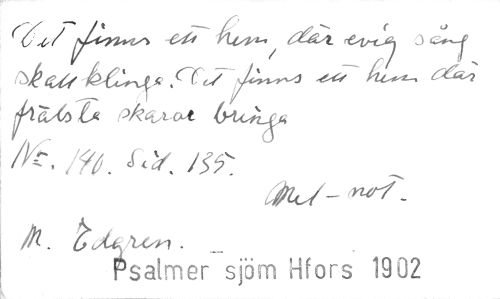 Det finns ett hem, där evig sång
skall klinga. Det finns ett hem där
frälsta skaror bringa
No. 140. Sid. 135.
Mel-not.
M. Edgren.
Psalmer sjöm Hfors 1902